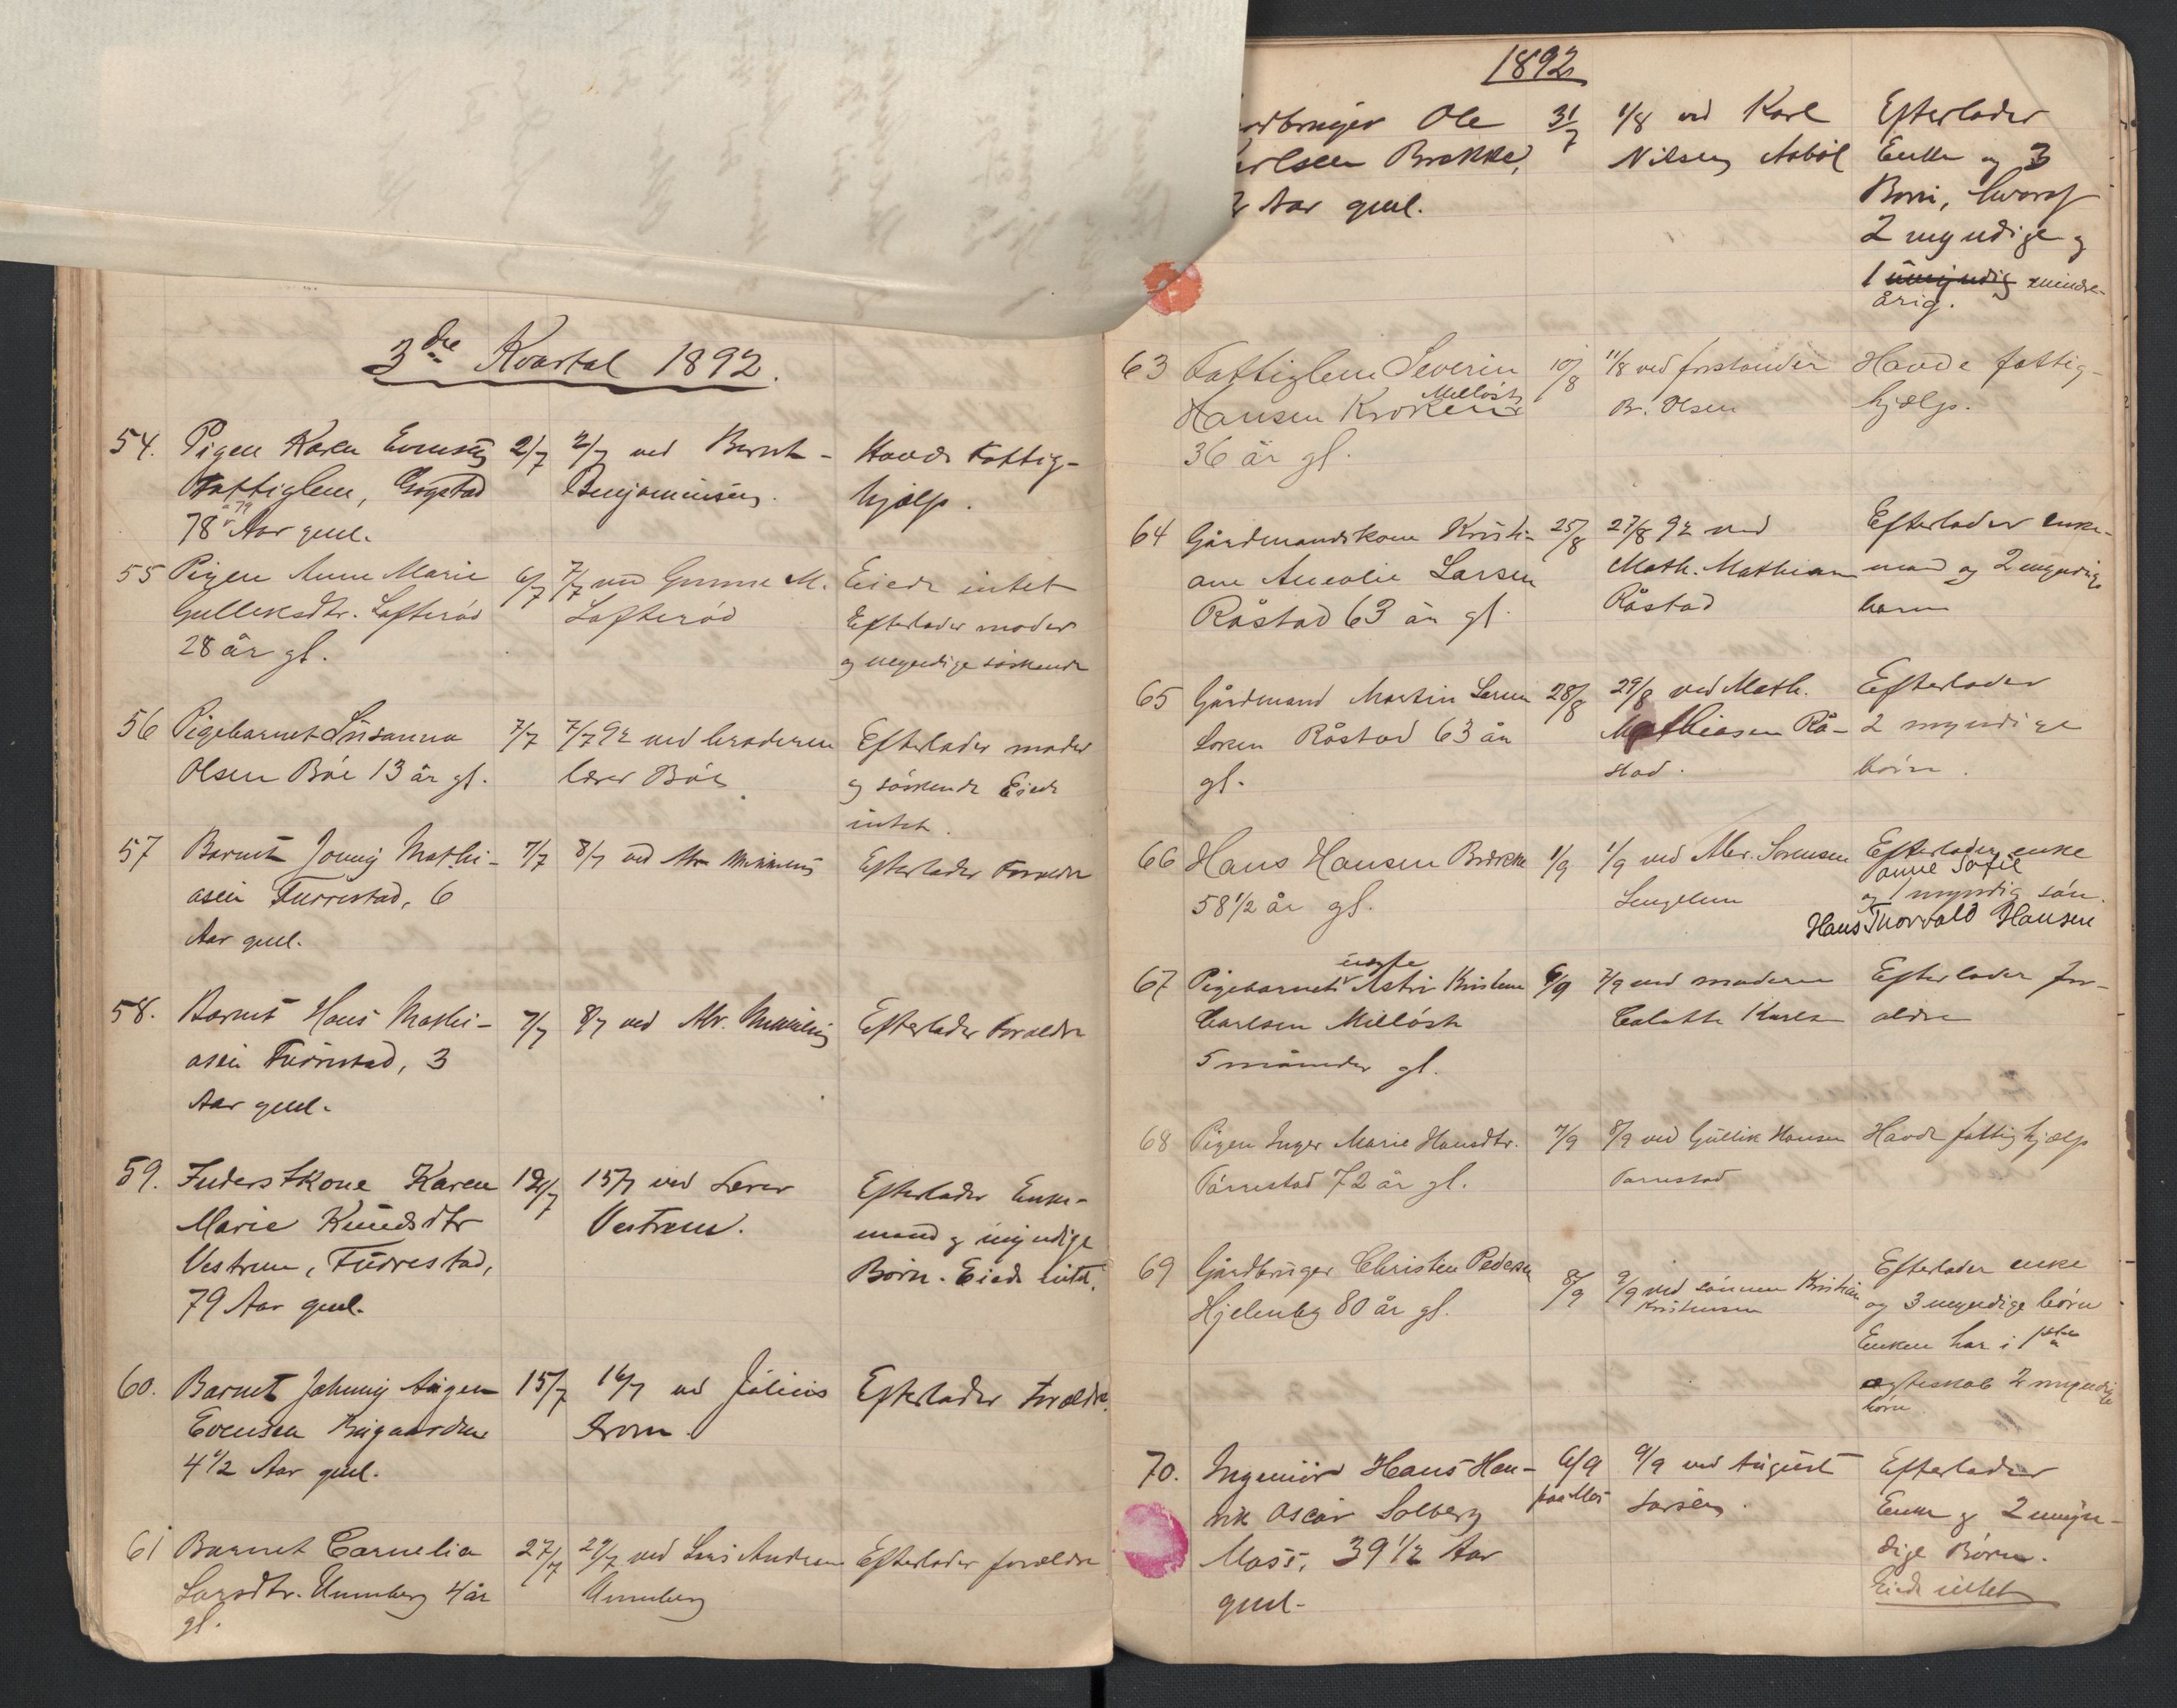 3die Kvartal 1892.
54. Pigen Karen Evensen 2/7 2/7 ved Bernt Havde Fattig-
Fattiglem, Gogstad Benjaminsen. hjælp.
78 a 79 Aar gml.
55 Pigen Anne Marie 6/7 7/7 ved Gunne M. Eiede intet
Gulleksdtr. Lofterød Lofterød Efterlader moder
28 år gl. og myndige søskende
56 Pigebarnet Susanna 7/7 7/7 92 ved broderen Efterlader moder
Olsen Bøe 13 år gl. lærer Bøe og søskende Eiede
intet.
57 Barnet Jonny Mathi- 7/7 8/7 ved Efterlader Forældre
asen Furrestad, 6
Aar gml.
58. Barnet Hans Mathi- 7/7 8/7 ved Efterlader Forældre
asen Furrestad, 3
Aar gml.
59. Inderstkone Karen 12/7 15/7 ved Lærer Efterlader Enke-
Marie Knudsdtr Vestrum. mand og myndige
Vestrum, Furrestad, Børn. Eiede intet.
79 Aar gml.
60. Barnet Johnny Aagen 15/7 16/7 ved Julius Efterlader Forældre.
Evensen Bugaarden
4 1/2 Aar gml.
61 Barnet Cornelia 27/7 29/7 ved Lars Andersen Efterlader forældre
Larsdtr. Unneberg 4 år Unneberg
gl.
1892
rdbruger Ole 31/7 1/8 ved Karl Efterlader
arlsen Brekke, Nilsen Aabøl Enke og 3
Aar gml. Børn, hvoraf
2 myndige og
1 umyndig mindre-
årig.
63 Fattiglem Severin 10/8 11/8 ved forstander Havde fattig-
Hansen Kroken Melløst B. Olsen hjælp.
36 år gl.
64 Gårdmandskone Kristi- 25/8 27/8 92 ved Efterlader enke-
ane Amalie Larsen Math. Mathiasen mand og 2 myndige
Råstad 63 år gl. Råstad barn
65 Gårdmand Martin Larsen 28/8 29/8 ved Math. Efterlader
Råstad 63 år Mathiasen Rå- 2 myndige
gl. stad. børn.
66 Hans Hansen Brække 1/9 1/9 ved Abr. Sørensen Efterlader enke
58 1/2 år gl. Lingelem Anne Sofie
og 1 myndig søn.
Hans Thorvald Hansen
67 Pigebarnet uægte Astri Kristine 6/9 7/9 ved moderen Efterlader for-
Carlsen Melløst Karls ældre
5 måneder gl.
68 Pigen Inger Marie Hansdtr. 7/9 8/9 ved Gullik Hansen Havde fattighjælp
Furrestad 72 år gl. Furrestad
69 Gårdbruger Christen Pedersen 8/9 9/9 ved sønnen Kristian Efterlader enke
Hjelmby 80 år gl. Kristensen og 3 myndige børn
Enken har i 1ste
ægteskab 2 myndige
børn.
70. Ingeniør Hans Hen- 6/9 9/9 ved August Efterlader
rik Oscar Solberg paa Moss Larsen. Enke og 2 umyn-
Moss, 39 1/2 Aar dige Børn.
gml. Eiede intet